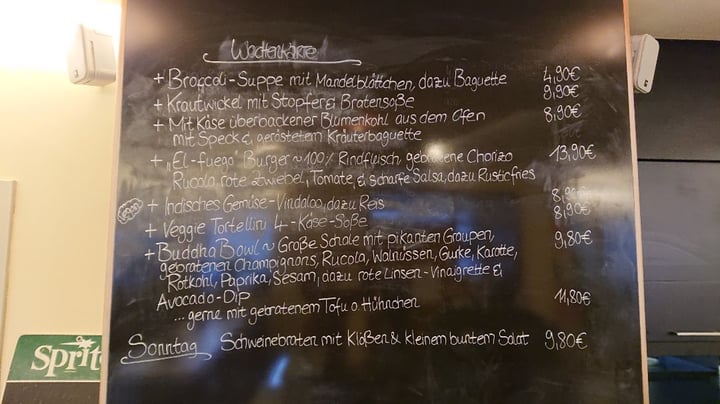 Wochenkarte
+ Broccoli-Suppe mit Mandelblättchen, dazu Baguette 4,90€
+ Krautwickel mit Stopfer & Bratensoße 9,90€
+ Mit Käse überbackener Blumenkohl aus dem Ofen 8,90€
mit Speck & gerösteten Kräuterbaguette
+ „El-fuego" Burger ~ 100% Rindfleisch, gebratene Chorizo 13,90€
Rucola, rote Zwiebel, Tomate, & scharfe Salsa, dazu Rusticfries
+ Indisches Gemüse-Vindaloo, dazu Reis 8,90€
+ Veggie Tortellini 4-Käse-Soße 8,90€
+ Buddha Bowl ~ Große Schale mit pikanten Graupen, 9,80€
gebratenen Champignons, Rucola, Walnüssen, Gurke, Karotte,
Rotkohl, Paprika, Sesam, dazu rote Linsen-Vinaigrette &
Avocado-Dip
... gerne mit gebratenem Tofu o. Hühnchen 11,80€
Sonntag Schweinebraten mit Klößen & kleinem buntem Salat 9,80€
Sprite